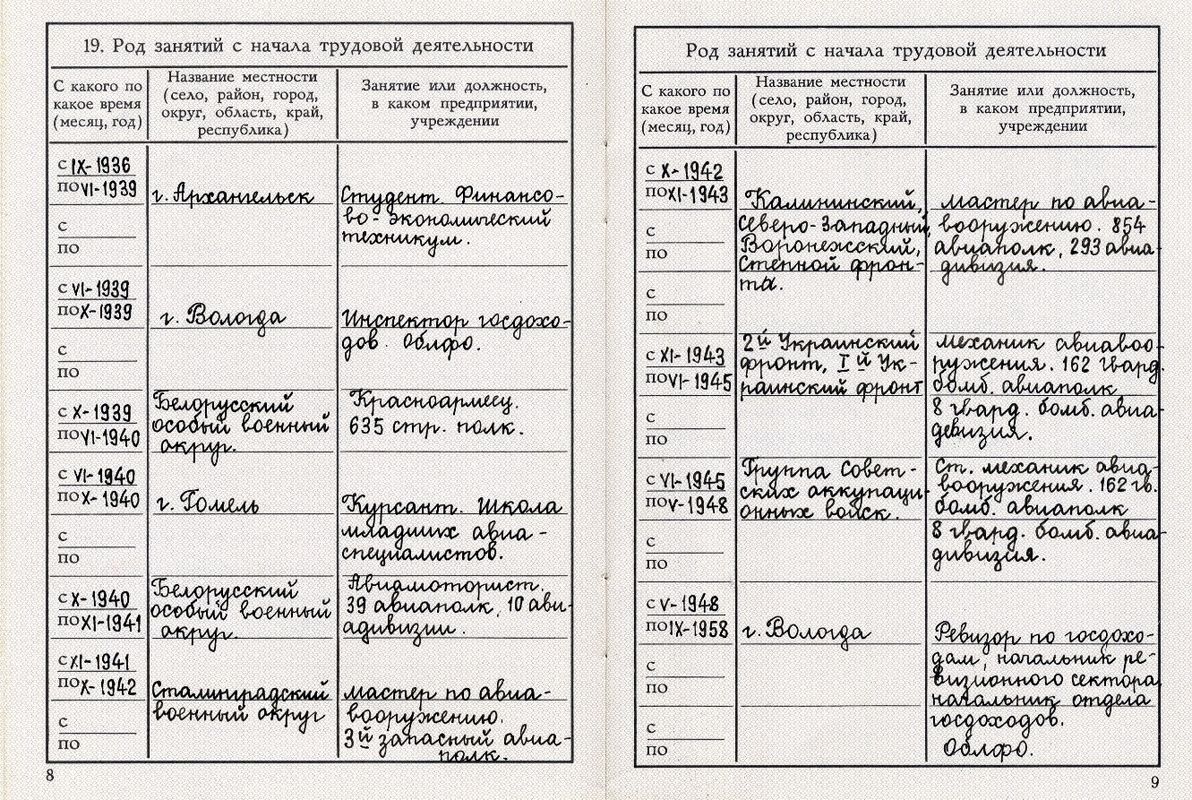 19. Род занятий с начала трудовой деятельности
С какого по
какое время
(месяц, год)
Название местности
(село, район, город,
округ, область, край,
республика)
Занятие или должность,
в каком предприятии,
учреждении
с IX-1936
по VI-1939
г. Архангельск
Студент. Финансо-
во-экономический
техникум.
с
по
с VI-1939
по X-1939
г. Вологда
Инспектор госдохо-
дов. Облфо.
с
по
с X-1939
по VI-1940
Белорусский
особый военный
округ.
Красноармеец.
635 стр. полк.
с VI-1940
по X-1940
г. Гомель
Курсант. Школа
младших авиа-
специалистов.
с
по
с X-1940
по XI-1941
Белорусский
особый военный
округ.
Авиамоторист.
39 авиаполк, 10 ави-
адивизии.
с XI-1941
по X-1942
Сталинградский
военный округ
мастер по авиа-
вооружению.
3й запасный авиа-
полк.
с
по
8
Род занятий с начала трудовой деятельности
С какого по
какое время
(месяц, год)
Название местности
(село, район, город,
округ, область, край,
республика)
Занятие или должность,
в каком предприятии,
учреждении
с X-1942
по XI-1943
Калининский,
Северо-Западный,
Воронежсский,
Степной фрон-
та.
мастер по авиа-
вооружению. 854
авиаполк, 293 авиа-
дивизия.
с
по
с
по
с XI-1943
по VI-1945
2й Украинский
фронт, I й Ук-
раинский фронт
механик авиавоо-
ружения. 162 гвард.
бомб. авиаполк
8 гвард. бомб. авиа-
девизия.
с
по
с VI-1945
по V-1948
Группа Совет-
ских аккупаци-
онных войск.
Ст. механик авиа-
вооружения. 162 гв.
бомб. авиаполк
8 гвард. бомб. авиа-
дивизия.
с
по
с V-1948
по IX-1958
г. Вологда
Ревизор по госдохо-
дам, начальник ре-
визионного сектора,
начальник отдела
госдоходов.
Облфо.
с
по
с
по
9